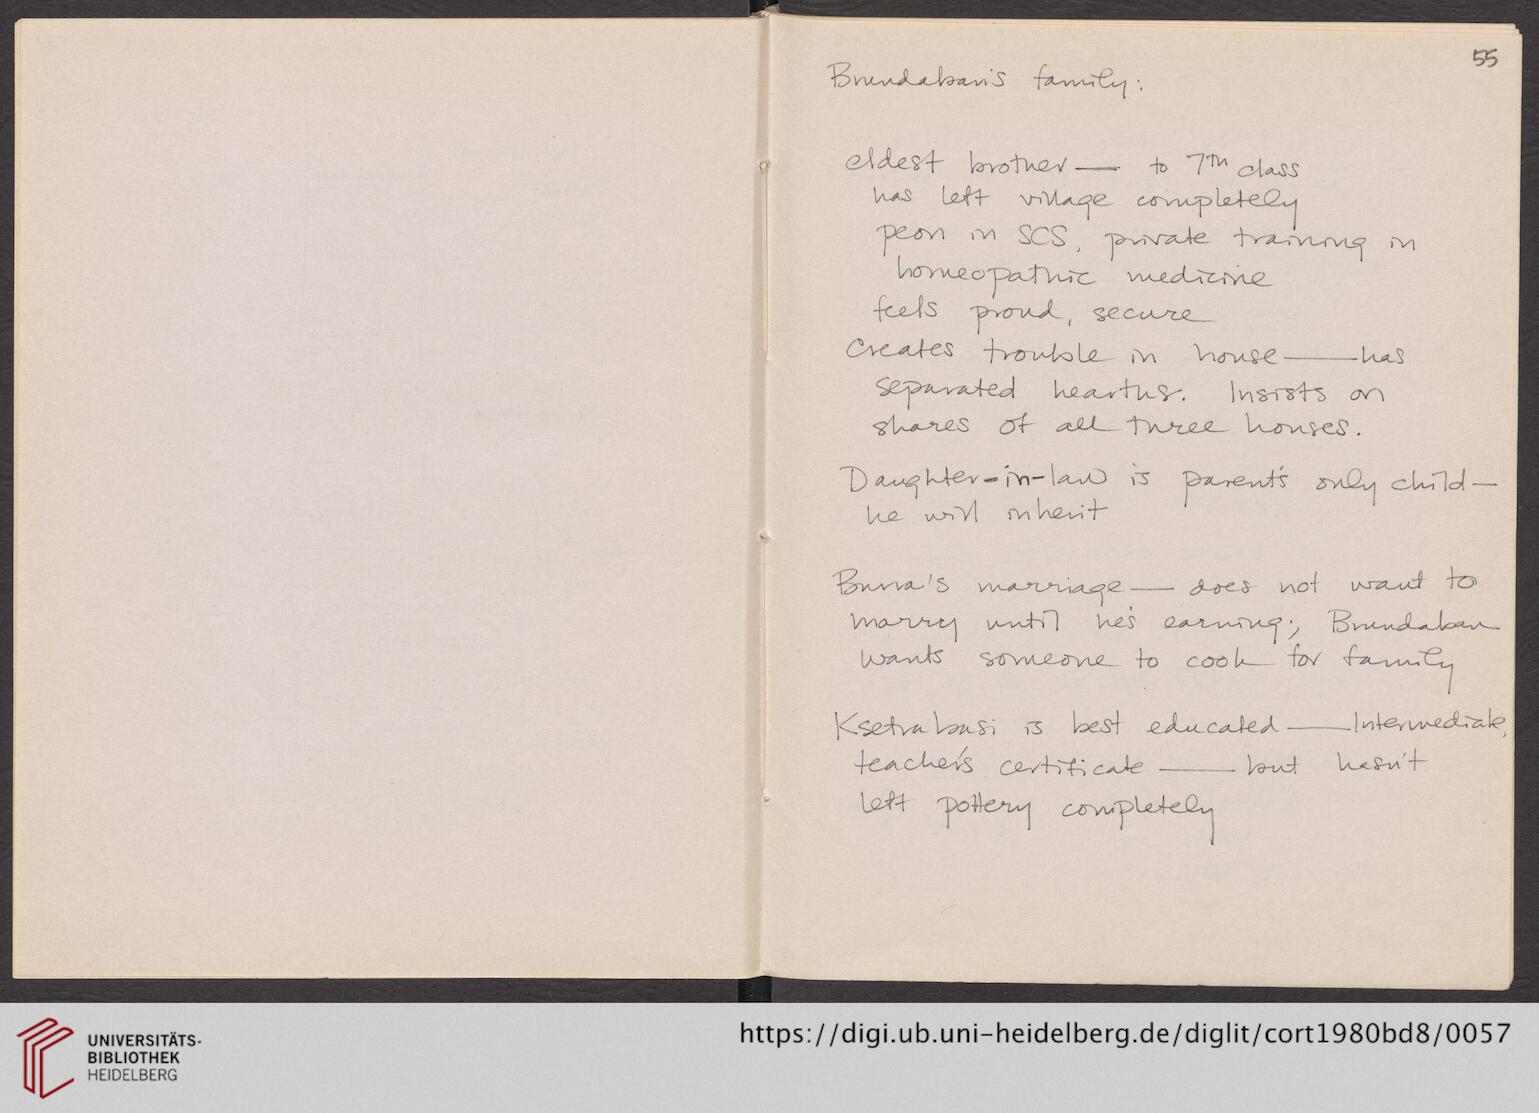 55
Brundaban's family:
eldest brother — to 7TH class
has left village completely
peon in SCS, private training in
homeopathic medicine
feels proud, secure
Creates trouble in house — has
separated hearths. Insists on
shares of all three houses.
Daughter-in-law is parent's only child —
he will inherit
Buna's marriage — does not want to
marry until he's earning; Brundaban
wants someone to cook for family
Ksetrabasi is best educated — Intermediate,
teacher's certificate — but hasn't
left pottery completely
UNIVERSITÄTS-
BIBLIOTHEK
HEIDELBERG
https://digi.ub.uni-heidelberg.de/diglit/cort1980bd8/0057